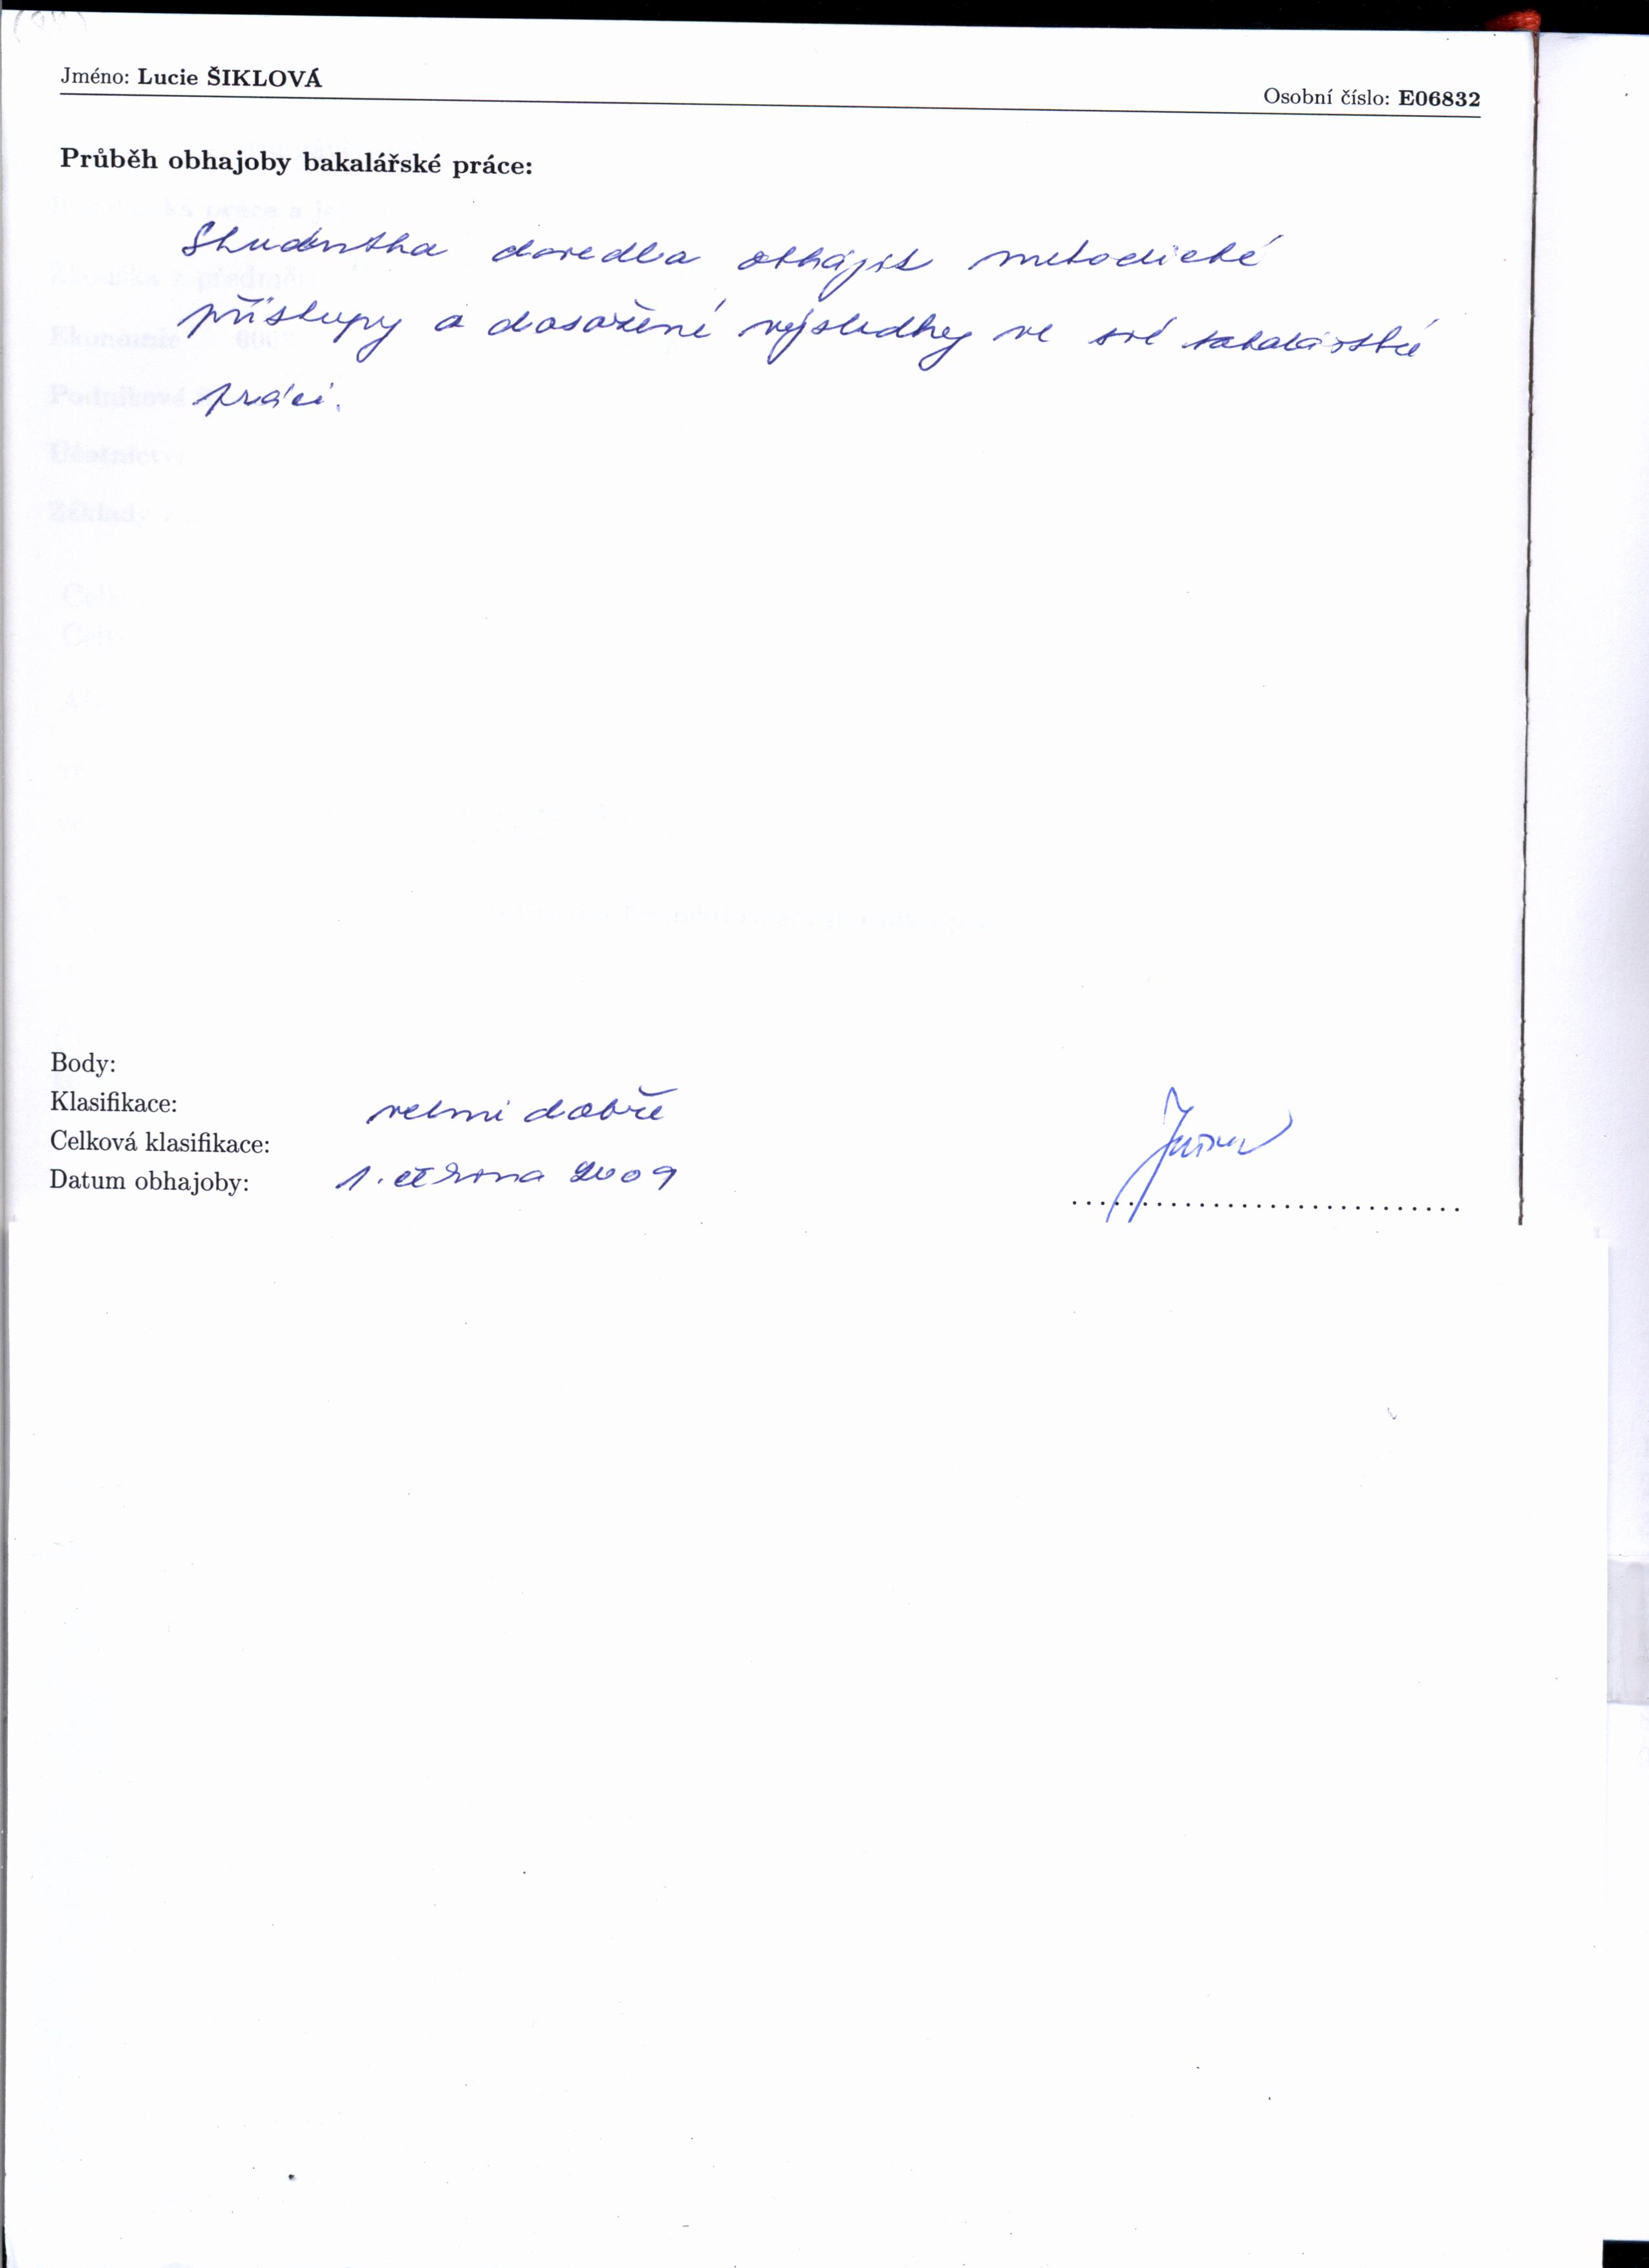 Jméno: Lucie ŠIKLOVÁ
Osobní číslo: E06832
Průběh obhajoby bakalářské práce:
Studentka dovedla obhájit metodické
přístupy a dosažené výsledky ve své bakalářské
práci.
Body:
Klasifikace: velmi dobře
Celková klasifikace:
Datum obhajoby: 1. června 2009